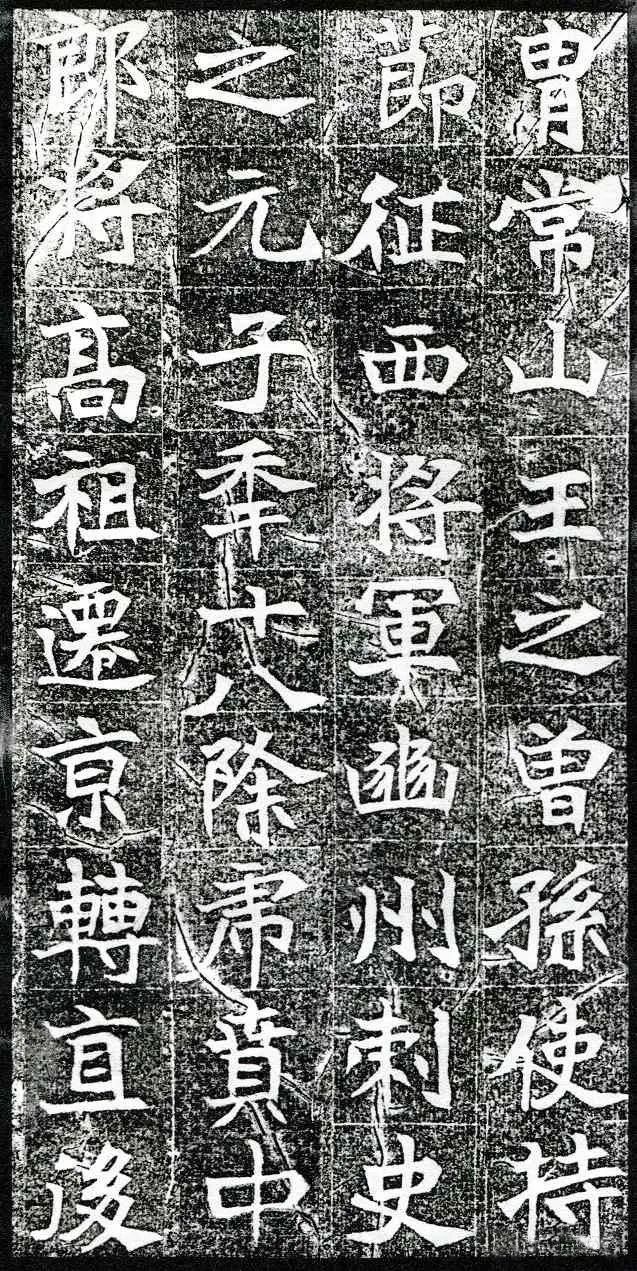 胄常山王之曾孫使持
節征西將軍幽州刺史
之元子秊廿八除虎賁中
郎將髙祖遷京轉直後